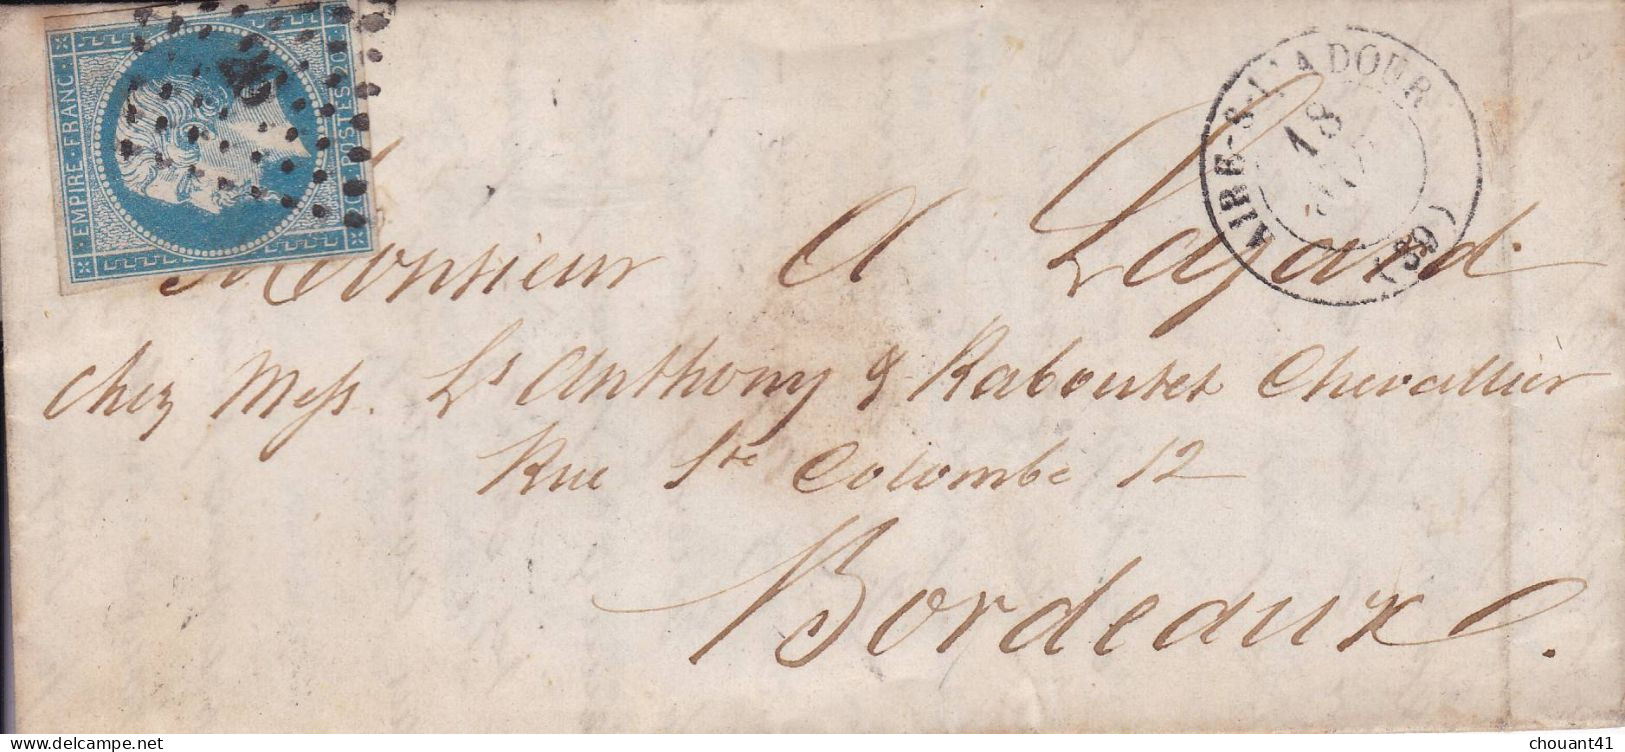 EMPIRE · FRANC ·
20 C. POSTES 20 C.
AIRE-S-L'ADOUR
18
(39)
Monsieur A Lafard
chez Mess. Ls Anthony & Raboutet Chevallier
Rue Ste Colombe 12
Bordeaux
www.delcampe.net
chouant41